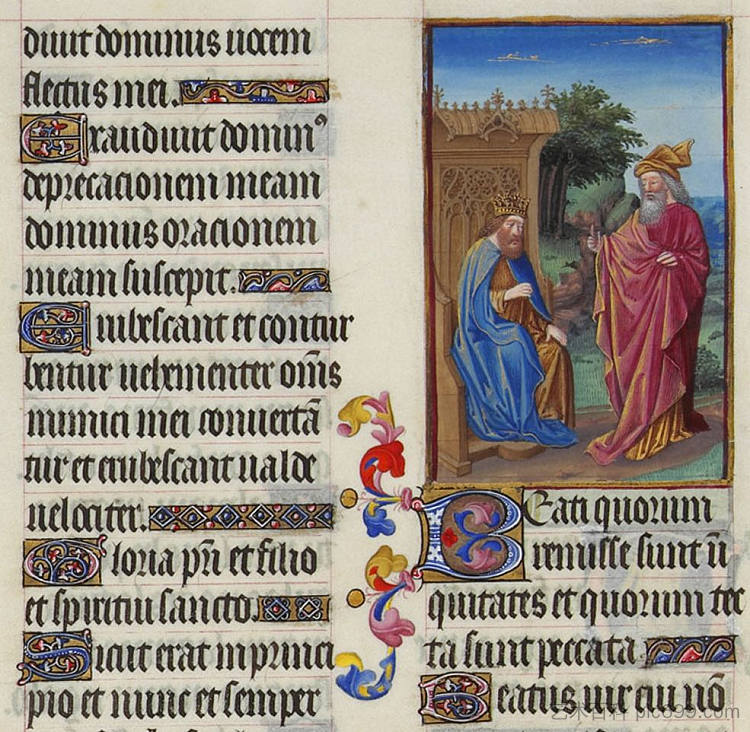 diuit dominus uocem
fletus mei.
Exaudiuit domin⁹
deprecacionem meam
dominus oracionem
meam suscepit.
Erubescant et contur
bentur uehementer om̃s
inimici mei conuertã
tur et erubescant ualde
uelociter.
Gloria pr̃i et filio
et spiritui sancto.
Sicut erat in princi
pio et nunc et semper
Beati quorum
remisse sunt ĩi
quitates et quorum tec
ta sunt peccata.
Beatus uir cui nõ
pico99.com